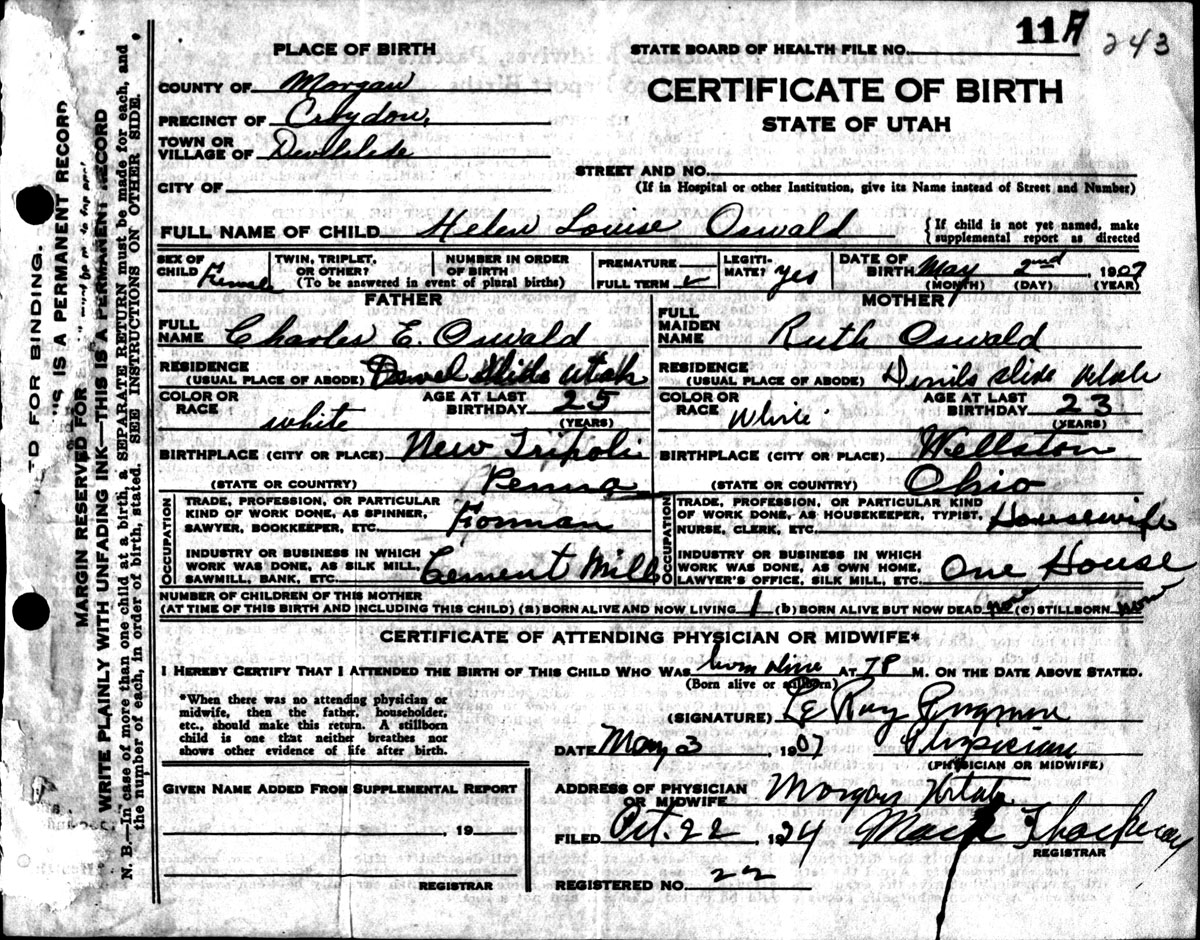 11A 243
PLACE OF BIRTH
STATE BOARD OF HEALTH FILE NO.
COUNTY OF Morgan
CERTIFICATE OF BIRTH
PRECINCT OF Croydon,
STATE OF UTAH
TOWN OR
VILLAGE OF Devilslide
STREET AND NO.
CITY OF
(If in Hospital or other Institution, give its Name instead of Street and Number)
FULL NAME OF CHILD Helen Louise Oswald
{If child is not yet named, make
supplemental report as directed
SEX OF
CHILD Female
TWIN, TRIPLET,
OR OTHER?
NUMBER IN ORDER
OF BIRTH
(To be answered in event of plural births)
PREMATURE
FULL TERM
LEGITI-
MATE? yes
DATE OF
BIRTH May 2nd, 1907
(MONTH) (DAY) (YEAR)
FATHER
FULL
NAME Charles E. Oswald
RESIDENCE
(USUAL PLACE OF ABODE) Devel Slide Utah
COLOR OR
RACE white
AGE AT LAST
BIRTHDAY 25
(YEARS)
BIRTHPLACE (CITY OR PLACE) New Tripoli
(STATE OR COUNTRY) Penna
OCCUPATION
TRADE, PROFESSION, OR PARTICULAR
KIND OF WORK DONE, AS SPINNER,
SAWYER, BOOKKEEPER, ETC. Forman
INDUSTRY OR BUSINESS IN WHICH
WORK WAS DONE, AS SILK MILL,
SAWMILL, BANK, ETC. Cement Mill
MOTHER
FULL
MAIDEN
NAME Ruth Oswald
RESIDENCE
(USUAL PLACE OF ABODE) Devils slide Utah
COLOR OR
RACE White
AGE AT LAST
BIRTHDAY 23
(YEARS)
BIRTHPLACE (CITY OR PLACE) Wellston
(STATE OR COUNTRY) Ohio
OCCUPATION
TRADE, PROFESSION, OR PARTICULAR KIND
OF WORK DONE, AS HOUSEKEEPER, TYPIST,
NURSE, CLERK, ETC. Housewife
INDUSTRY OR BUSINESS IN WHICH
WORK WAS DONE, AS OWN HOME,
LAWYER'S OFFICE, SILK MILL, ETC. One House
NUMBER OF CHILDREN OF THIS MOTHER
(AT TIME OF THIS BIRTH AND INCLUDING THIS CHILD) (a) BORN ALIVE AND NOW LIVING 1 (b) BORN ALIVE BUT NOW DEAD non (c) STILLBORN non
CERTIFICATE OF ATTENDING PHYSICIAN OR MIDWIFE*
I HEREBY CERTIFY THAT I ATTENDED THE BIRTH OF THIS CHILD WHO WAS born alive AT 7 P M. ON THE DATE ABOVE STATED.
(Born alive or stillborn)
*When there was no attending physician or
midwife, then the father, householder,
etc., should make this return. A stillborn
child is one that neither breathes nor
shows other evidence of life after birth.
(SIGNATURE) Le Ray
DATE May 3, 1907 Physician
(PHYSICIAN OR MIDWIFE)
GIVEN NAME ADDED FROM SUPPLEMENTAL REPORT
, 19
REGISTRAR
ADDRESS OF PHYSICIAN
OR MIDWIFE Morgan Utah
FILED Oct. 22, 1924 Thackeray
REGISTRAR
REGISTERED NO. 22
FOR BINDING.
IS A PERMANENT RECORD
MARGIN RESERVED FOR
WRITE PLAINLY WITH UNFADING INK—THIS IS A PERMANENT RECORD
N. B.—In case of more than one child at a birth, a SEPARATE RETURN must be made for each, and
the number of each, in order of birth, stated. SEE INSTRUCTIONS ON OTHER SIDE.